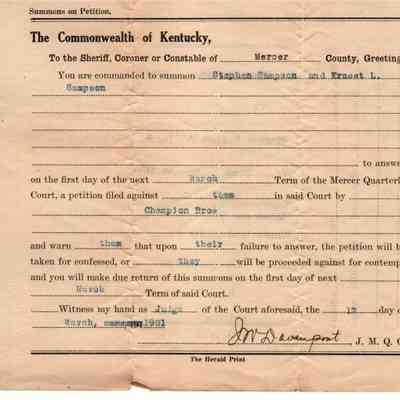 Summons on Petition.
The Commonwealth of Kentucky,
To the Sheriff, Coroner or Constable of Mercer County, Greeting
You are commanded to summon Stephen Sampson and Ernest L.
Sampson
to answe
on the first day of the next March Term of the Mercer Quarterl
Court, a petition filed against them in said Court by
Champion Bros
and warn them that upon their failure to answer, the petition will b
taken for confessed, or they will be proceeded against for contemp
and you will make due return of this summons on the first day of next
March Term of said Court.
Witness my hand as Judge of the Court aforesaid, the 12 day o
March, 1921
J W Davenport J. M. Q. C
The Herald Print